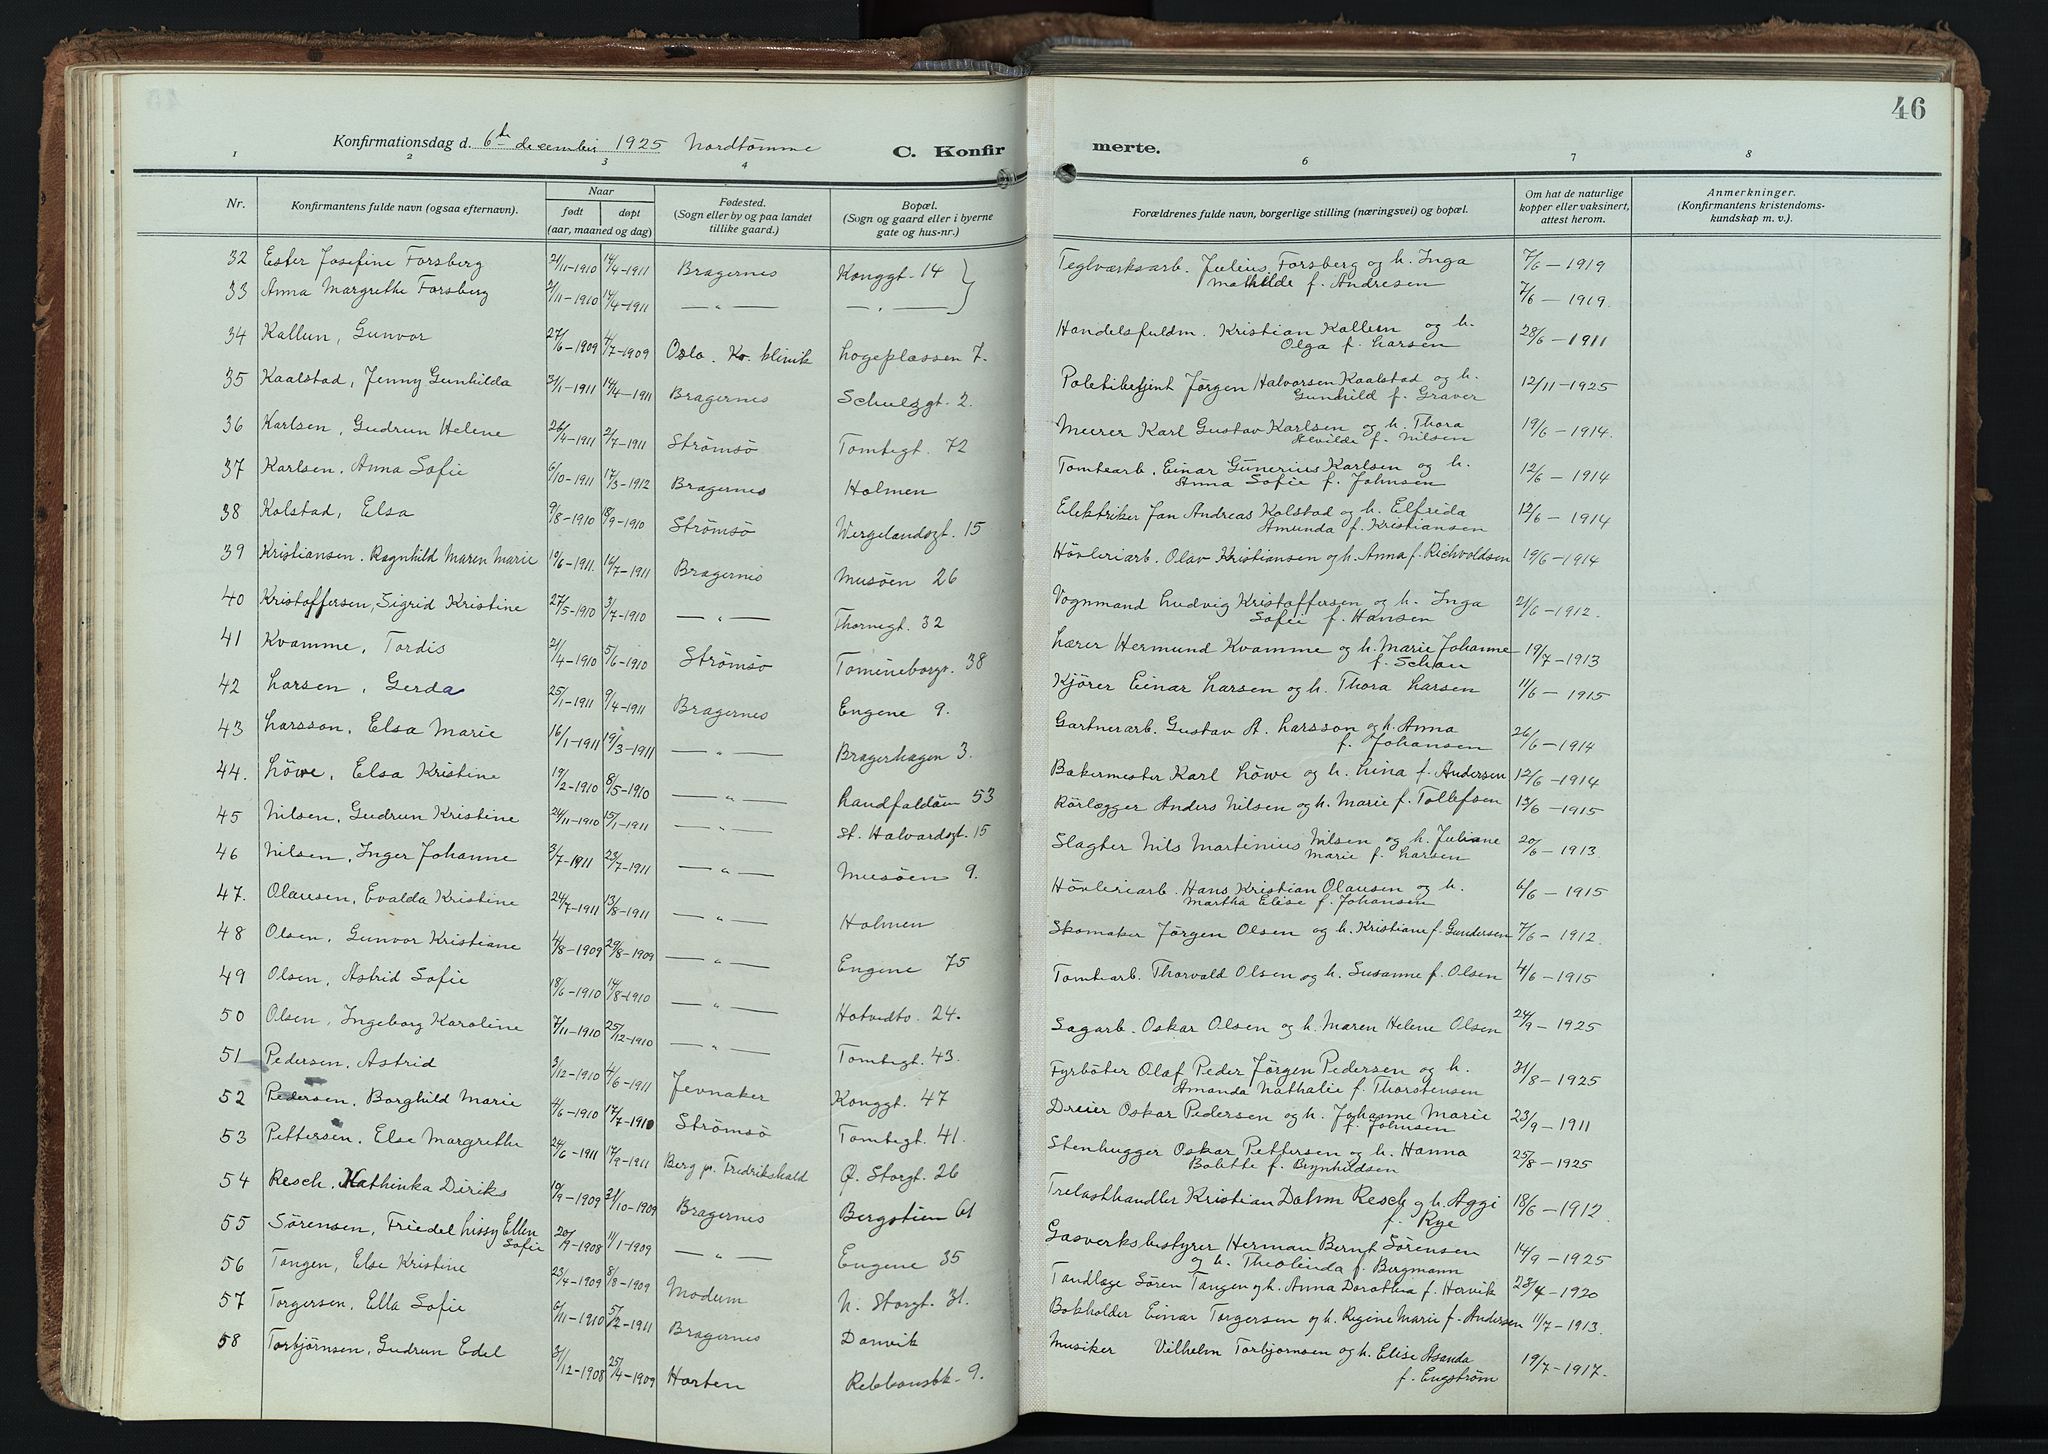 46
Konfirmationsdag d. 6te december 1925
C. Konfirmerte.
1 2 3 4 6 7 8
Nr.
Konfirmantens fulde navn (ogsaa efternavn).
Naar
født døpt
(aar, maaned og dag)
Fødested.
(Sogn eller by og paa landet
tillike gaard.)
Bopæl.
(Sogn og gaard eller i byerne
gate og hus-nr.)
Forældrenes fulde navn, borgerlige stilling (næringsvei) og bopæl.
Om hat de naturlige
kopper eller vaksinert,
attest herom.
Anmerkninger.
(Konfirmantens kristendoms-
kundskap m. v.).
32 Ester Josefine Forsberg 21/11-1910 14/4-1911 Bragernes Konggt. 14 Teglværksarb. Julius Forsberg og h. Inga 7/6-1919
Mathilde f. Andresen
33 Anna Margrethe Forsberg 21/11-1910 14/4-1911 — " — — " — 7/6-1919.
34 Kallum, Gunvor 27/6-1909 4/7-1909 Oslo. Kv. klinik Logeplassen 7. Handelsfuldm. Kristian Kallum og h. 28/6-1911
Olga f. Larsen
35 Kaalstad, Jenny Gunhilda 31/1-1911 14/4-1911 Bragernes Schulzgt. 2. Politibetjent Jørgen Halvorsen Kaalstad og h. 12/11-1925
Gunhild f. Graver
36 Karlsen, Gudrun Helene 26/4-1911 2/7-1911 Strømsö Tomtegt. 72 Murer Karl Gustav Karlsen og h. Thora 19/6-1914.
Alvilde f. Nilsen
37 Karlsen, Anna Sofie 6/10-1911 17/3-1912 Bragernes Holmen Tomtearb. Einar Gunerius Karlsen og h. 12/6-1914
Anna Sofie f. Johnsen
38 Kolstad, Elsa 9/8-1910 18/9-1910 Strømsö Wergelandsgt. 15 Elektriker Jan Andreas Kolstad og h. Elfrida 12/6-1914
Amunda f. Kristiansen
39 Kristiansen, Ragnhild Maren Marie 10/6-1911. 16/7-1911 Bragernes Musöen 26 Hövleriarb. Olav Kristiansen og h. Anna f. Richvoldsen 19/6-1914
40 Kristoffersen, Sigrid Kristine 27/5-1910 3/7-1910 — " — Thornegt. 32 Vognmand Ludvig Kristoffersen og h. Inga 21/6-1912.
Sofie f. Hansen
41 Kvamme, Tordis 21/4-1910 5/6-1910 Strømsö 38 Lærer Hermund Kvamme og h. Marie Johanne 19/7-1913
f. Schau
42 Larsen, Gerda 25/1-1911 9/4-1911 Bragernes Engene 9. Kjörer Einar Larsen og h. Thora Larsen 11/6-1915
43 Larsson, Elsa Marie 16/1-1911 19/3-1911 — " — Bragerhagen 3. Gartnerarb. Gustav A. Larsson og h. Anna 26/6-1914
f. Johansen
44. Löwe, Elsa Kristine 19/2-1910 8/5-1910 — " — Landfaldöin 53 Bakermester Karl Löwe og h. Lina f. Andersen 12/6-1914
45 Nilsen, Gudrun Kristine 24/11-1910 15/1-1911 — " — St. Halvardsgt. 15 Rörlægger Anders Nilsen og h. Marie f. Tollefsen 13/6-1915
46 Nilsen, Inger Johanne 3/7-1911 23/7-1911 — " — Musöen 9. Slagter Nils Martinius Nilsen og h. Juliane 20/6-1913
Marie f. Larsen
47. Olausen, Evalda Kristine 24/7-1911 13/8-1911 — " — Holmen Hövleriarb. Hans Kristian Olausen og h. 6/6-1915
Martha Elise f. Johansen
48 Olsen, Gunvor Kristiane 4/8-1909 29/8-1909 — " — Engene 75 Skomaker Jørgen Olsen og h. Kristiane f. Gundersen 7/6-1912.
49 Olsen, Astrid Sofie 18/6-1910 14/8-1910 — " — Hotvedtv. 24. Tomtearb. Thorvald Olsen og h. Susanne f. Olsen 4/6-1915
50 Olsen, Ingeborg Karoline 7/11-1910 25/12-1910 — " — Tomtegt. 43. Sagarb. Oskar Olsen og h. Maren Helene Olsen 24/9-1925
51 Pedersen, Astrid 3/12-1910 4/6-1911 Jevnaker Konggt. 47 Fyrböter Olaf Peder Jörgen Pedersen og h. 31/8-1925
Amanda Nathalie f. Thorstensen
52 Pedersen, Borghild Marie 4/6-1910 17/7-1910 Strømsö Tomtegt. 41. Dreier Oskar Pedersen og h. Johanne Marie 23/9-1911
f. Johnsen
53 Pettersen, Else Margrethe 24/6-1911 17/9-1911 Berg pr. Fredrikshald Ö. Storgt. 26 Stenhugger Oskar Pettersen og h. Hanna 25/8-1925
Bolette f. Brynhildsen
54 Resch, Kathinka Diriks 10/9-1909 31/10-1909 Bragernes Bergstien 61 Trelasthandler Kristian Dahm Resch og h. Aggi 18/6-1912
f. Rye
55 Sörensen, Friedel Lissy Ellen 20/9-1908 11/1-1909 — " — Engene 35 Gasverksbestyrer Herman Bernt Sörensen 14/9-1925
Sofie og h. Theolinda f. Bergmann
56 Tangen, Else Kristine 23/4-1909 8/8-1909 Modum N. Storgt. 31. Tandlæge Sören Tangen og h. Anna Dorothea f. Hervik 23/4-1920
57 Torgersen, Ella Sofie 6/11-1910 5/2-1911 Bragernes Danvik Bokholder Einar Torgersen og h. Regine Marie f. Andersen 11/7-1913.
58 Torbjørnsen, Gudrun Edel 31/12-1908 25/4-1909 Horten 9. Musiker Vilhelm Torbjørnsen og h. Elise Asanda 19/7-1917.
f. Engström